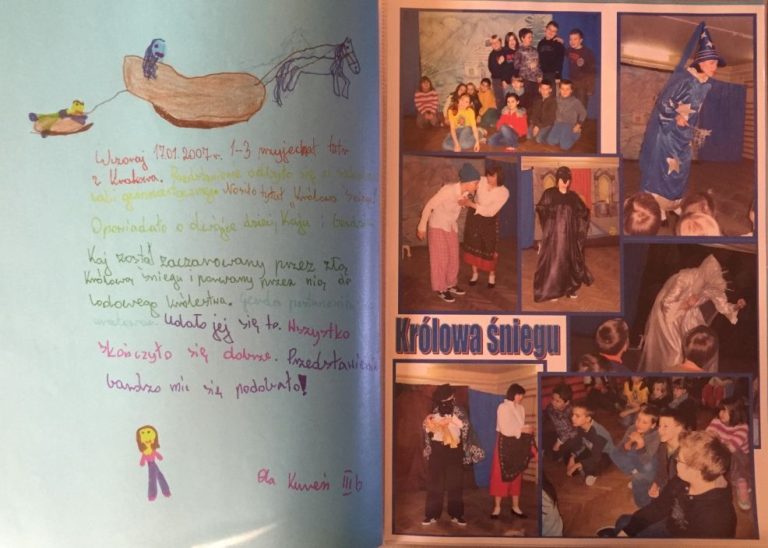 Wczoraj 17.01.2007r. 1-3 przyjechał teatr
z Krakowa. Przedstawienie odbyło się w
sali gimnastycznej. Nosiło tytuł „Królowa śniegu”
Opowiadało o dwójce dzieci, Kaju i Gerdzie.
Kaj został zaczarowany przez złą
królową śniegu i porwany przez nią do
lodowego królestwa. Gerda postanowiła
Udało jej się to. Wszystko
skończyło się dobrze. Przedstawienie
bardzo mi się podobało!
Ola III b
Królowa śniegu